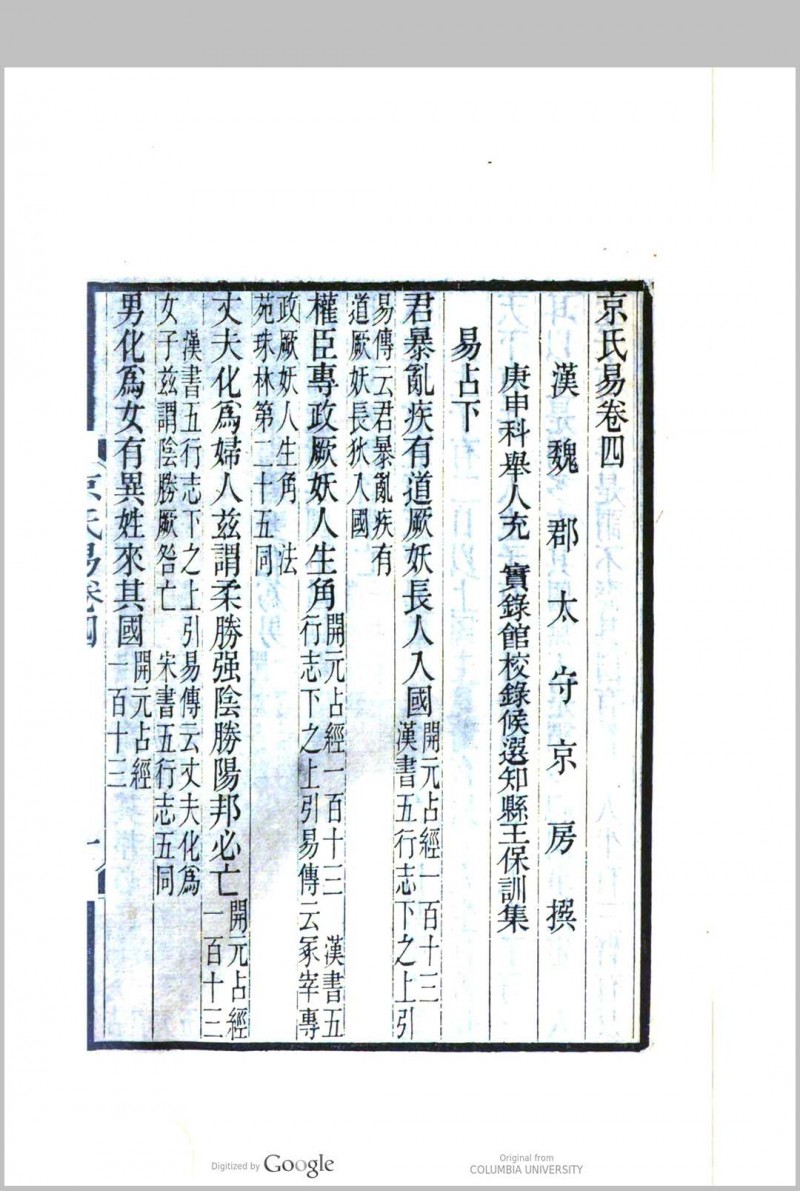 京氏易卷四
漢魏郡太守京房撰
庚申科舉人充 實錄館校錄候選知縣王保訓集
易占下
君暴亂疾有道厥妖長人入國開元占經一百十三
漢書五行志下之上引
易傳云君暴亂疾有
道厥妖長狄入國
權臣專政厥妖人生角開元占經一百十三 漢書五
行志下之上引易傳云冢宰專
政厥妖人生角 法
苑珠林第二十五同
丈夫化爲婦人兹謂柔勝强陰勝陽邦必亡開元占經
一百十三
漢書五行志下之上引易傳云丈夫化爲
女子兹謂陰勝厥咎亡 宋書五行志五同
男化爲女有異姓來其國開元占經
一百十三
京氏易卷四
一
Digitized by Google
Original from
COLUMBIA UNIVERSITY